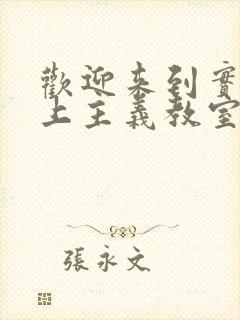 歡迎來到實
上主義教室
張永文